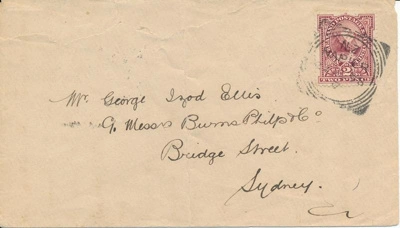 Mr. George Izod Ellis
C. Messrs Burns Philp & Co
Bridge Street.
Sydney.
2